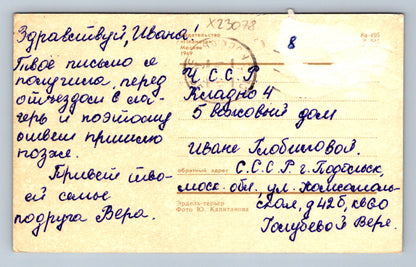 X23078
Здравствуй, Ивана!
Твоё письмо я
получила, перед
отъездом в ла-
герь и поэтому
ответ пришлю
позже.
Привет тво-
ей семье
подруга Вера.
Издательство
Москва
1969
8
Ч С С Р
Кладно 4
5 вежовый дом
Иване Глобиловой.
обратный адрес
С.С.С.Р. г. Подольск,
моск. обл., ул. Комсомоль-
ская, д 42б, кв 60
Голубевой Вере.
Эрдель-терьер
Фото Ю. Калитанова